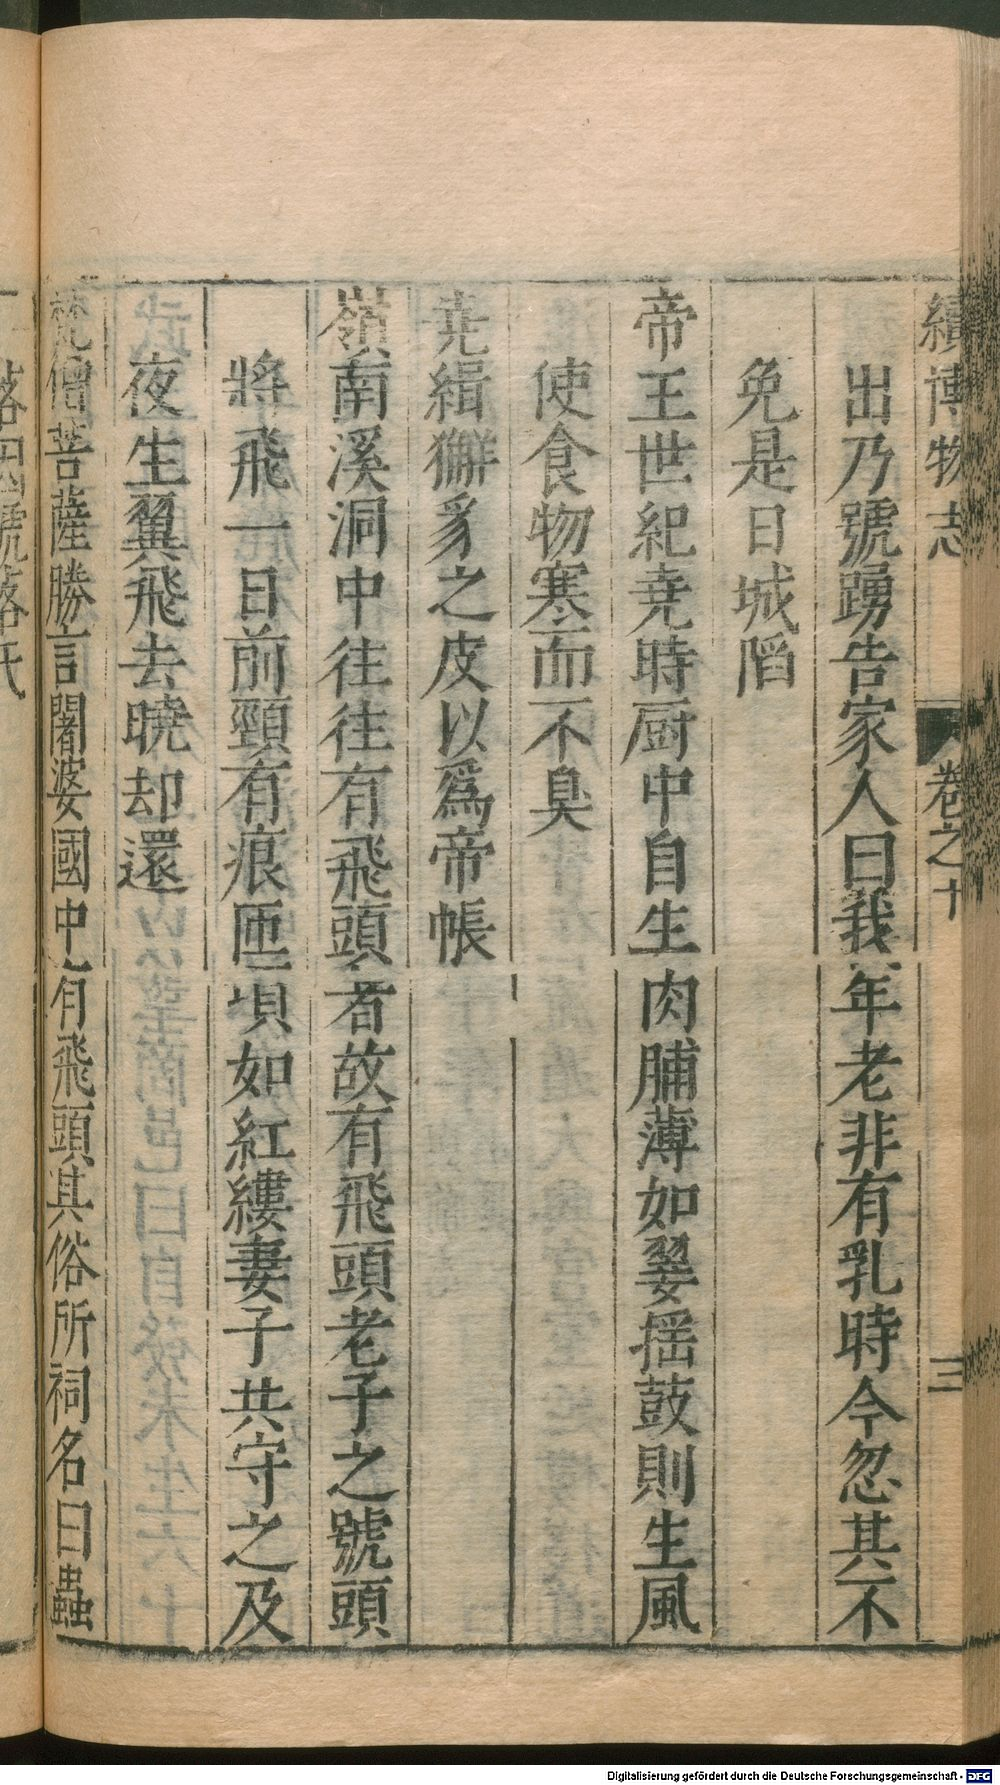 續博物志 卷之十 三
出乃號踴告家人曰我年老非有乳時今忽其不
免是日城陷
帝王世紀堯時厨中自生肉脯薄如翣揺鼓則生風
使食物寒而不臭
堯緝獬豸之皮以爲帝帳
嶺南溪洞中往往有飛頭者故有飛頭老子之號頭
將飛一日前頸有痕匝項如紅縷妻子共守之及
夜生翼飛去曉却還
梵僧菩薩勝言闍婆國中有飛頭其俗所祠名曰蟲
落因號落氏
Digitalisierung gefördert durch die Deutsche Forschungsgemeinschaft - DFG